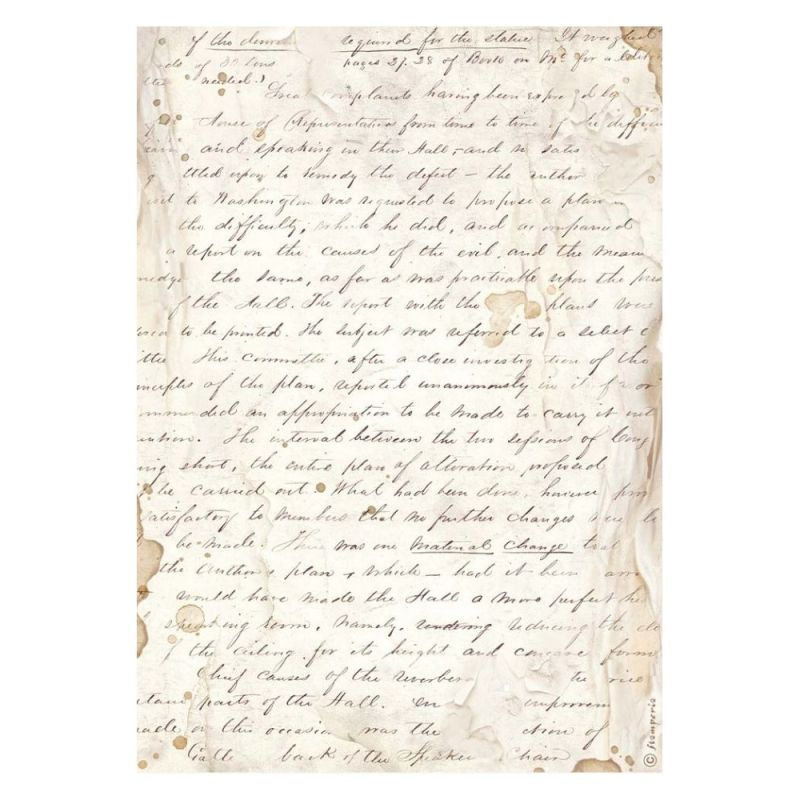 of the dome required for the statue It weighed
of 30 tons pages 27. 28 of Book on Mc for a
needed.)
Great complaints having been expressed by
House of Representatives from time to time of the difficu
and speaking in their Hall, and so satis
upon to remedy the defect — the author
to Washington was requested to propose a plan
the difficulty; which he did, and accompanied
a report on the causes of the evil, and the means
the same, as far as was practicable upon the
of the Hall. The report with the plans were
to be printed. The subject was referred to a select c
ittee This committee, after a close investigation of the
inciples of the plan, reported unanimously in its favor
ommended an appropriation to be made to carry it into
The interval between the two sessions of Cong
ing short, the entire plan of alteration proposed
be carried out. What had been done, however
satisfactory to members that no further changes were to
be made. There was one material change to
the Author's plan, which — had it been
would have made the Hall a more perfect he
speaking room, namely, reducing the
f the ceiling for its height and concave form
Chief causes of the reverbera the
parts of the Hall. improvem
made on this occasion was the ction of
back of the Speaker Chair
© Stamperia